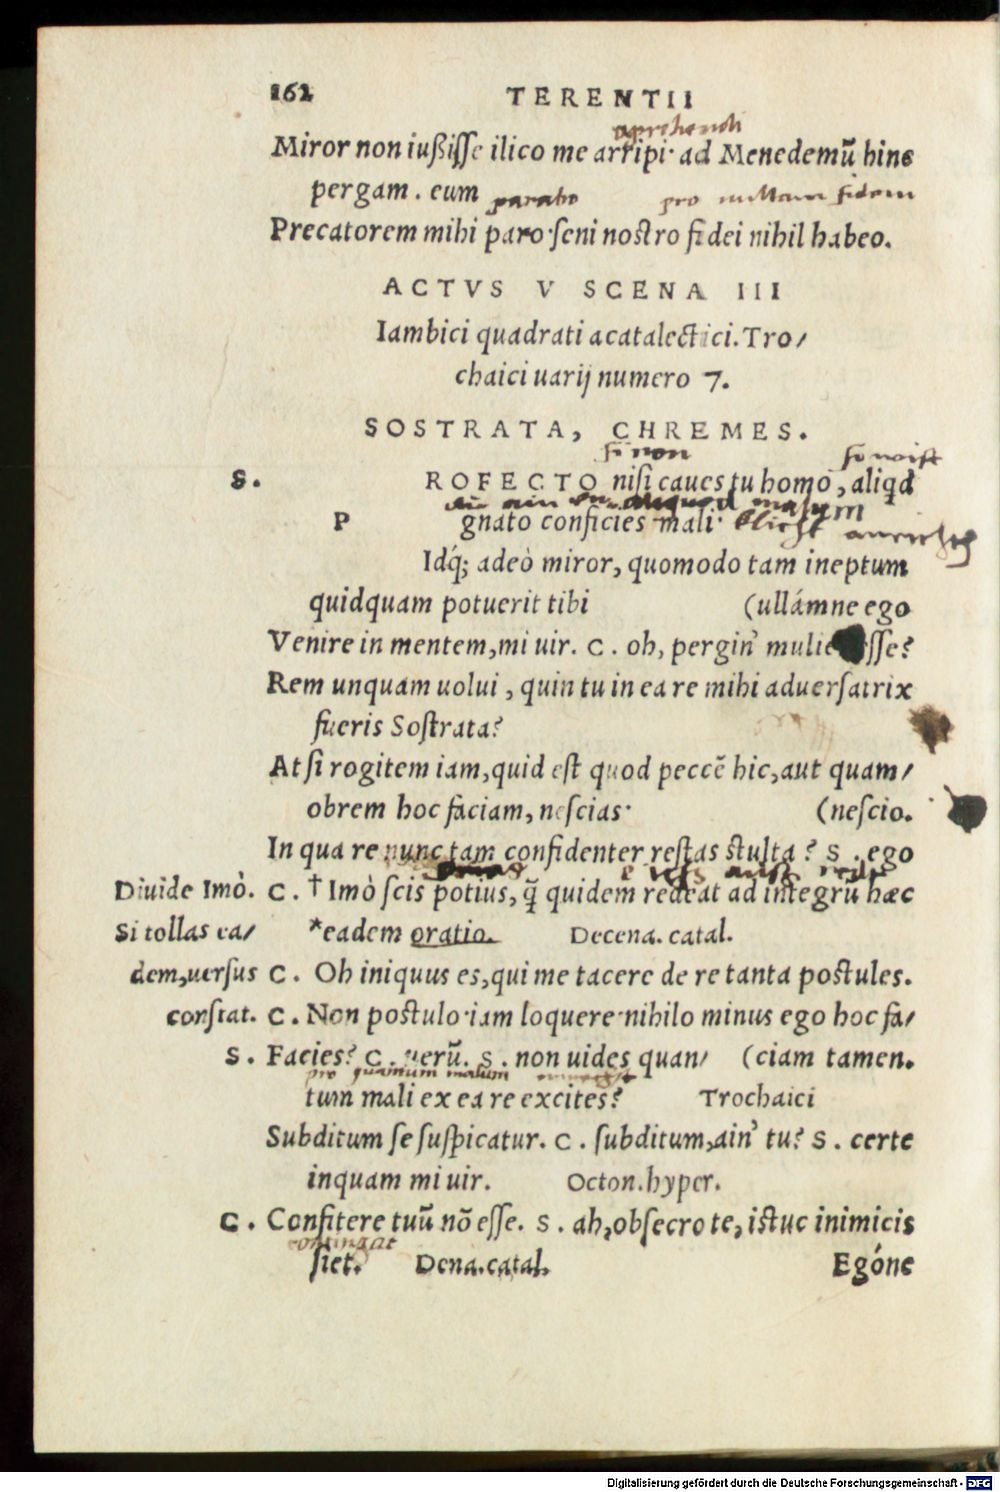 162 TERENTII
aprehendi
Miror non iußiſſe ilico me arripi· ad Menedemũ hinc
pergam. eum
parabo pro nullam fidem
Precatorem mihi paro·ſeni noſtro fidei nihil habeo.
ACTVS V SCENA III
Iambici quadrati acatalectici. Tro/
chaici uarij numero 7.
SOSTRATA, CHREMES.
ſi non
S. PROFECTO niſi caues tu homo, aliqd
aliquod malum
gnato conficies mali·
Idq́; adeò miror, quomodo tam ineptum
quidquam potuerit tibi (ullámne ego
Venire in mentem, mi uir. C. oh, pergin' mulie eſſe?
Rem unquam uolui, quin tu in ea re mihi aduerſatrix
fueris Soſtrata?
At ſi rogitem iam, quid eſt quod peccẽ hic, aut quam/
obrem hoc faciam, neſcias· (neſcio.
In qua re nunc tam confidenter reſtas ſtulta? S. ego
Diuide Imò. C. † Imò ſcis potius, q̃ quidem redeat ad integrũ hæc
Si tollas ea/ *eadem oratio. Decena. catal.
dem, uerſus C. Oh iniquus es, qui me tacere de re tanta poſtules.
conſtat. C. Non poſtulo·iam loquere·nihilo minus ego hoc fa/
S. Facies? C. uerũ. S. non uides quan/ (ciam tamen.
pro quantum malum
tum mali ex ea re excites? Trochaici
Subditum ſe ſuſpicatur. C. ſubditum, ain' tu? S. certe
inquam mi uir. Octon. hyper.
C. Confitere tuũ nõ eſſe. S. ah, obſecro te, iſtuc inimicis
contingat
ſiet. Dena. catal. Egóne
Digitalisierung gefördert durch die Deutsche Forschungsgemeinschaft - DFG